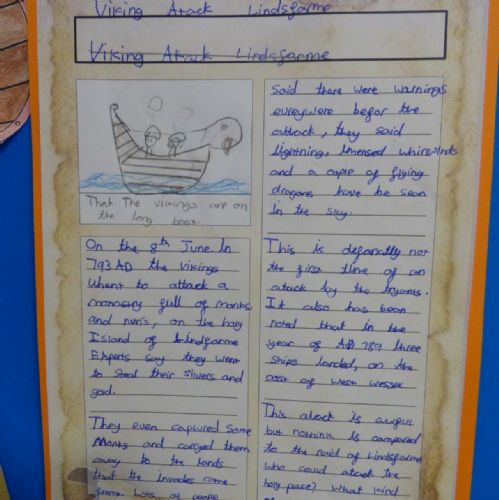 Viking Atack Lindsfarme
Viking Atack Lindsfarme
That The vikings are on
the long boat.
On the 8th June In
793 AD the vikings
Whent to attack a
monastry full of monks
and nun's, on the holy
Island of Lindsfarme
Experts say they went
to steal their silvers and
gold.
They even captured some
Monks and carryed them
away to the lands
that the invades come
from. Lots of people
Said there were warnings
evreywere befor the
attack, they said
lightning, Imensed whirlwinds
and a cuple of flying
dragons have be seen
in the sky.
This is defanatly not
the first time of an
atack by the tryants.
It also has been
noted that in the
year of AD 789 three
ships landed, on the
cost of West Wessex
This atack is awful
but nothink is compared
to the raid of Lindsfarme
who could attack the
holy place? What kind
of